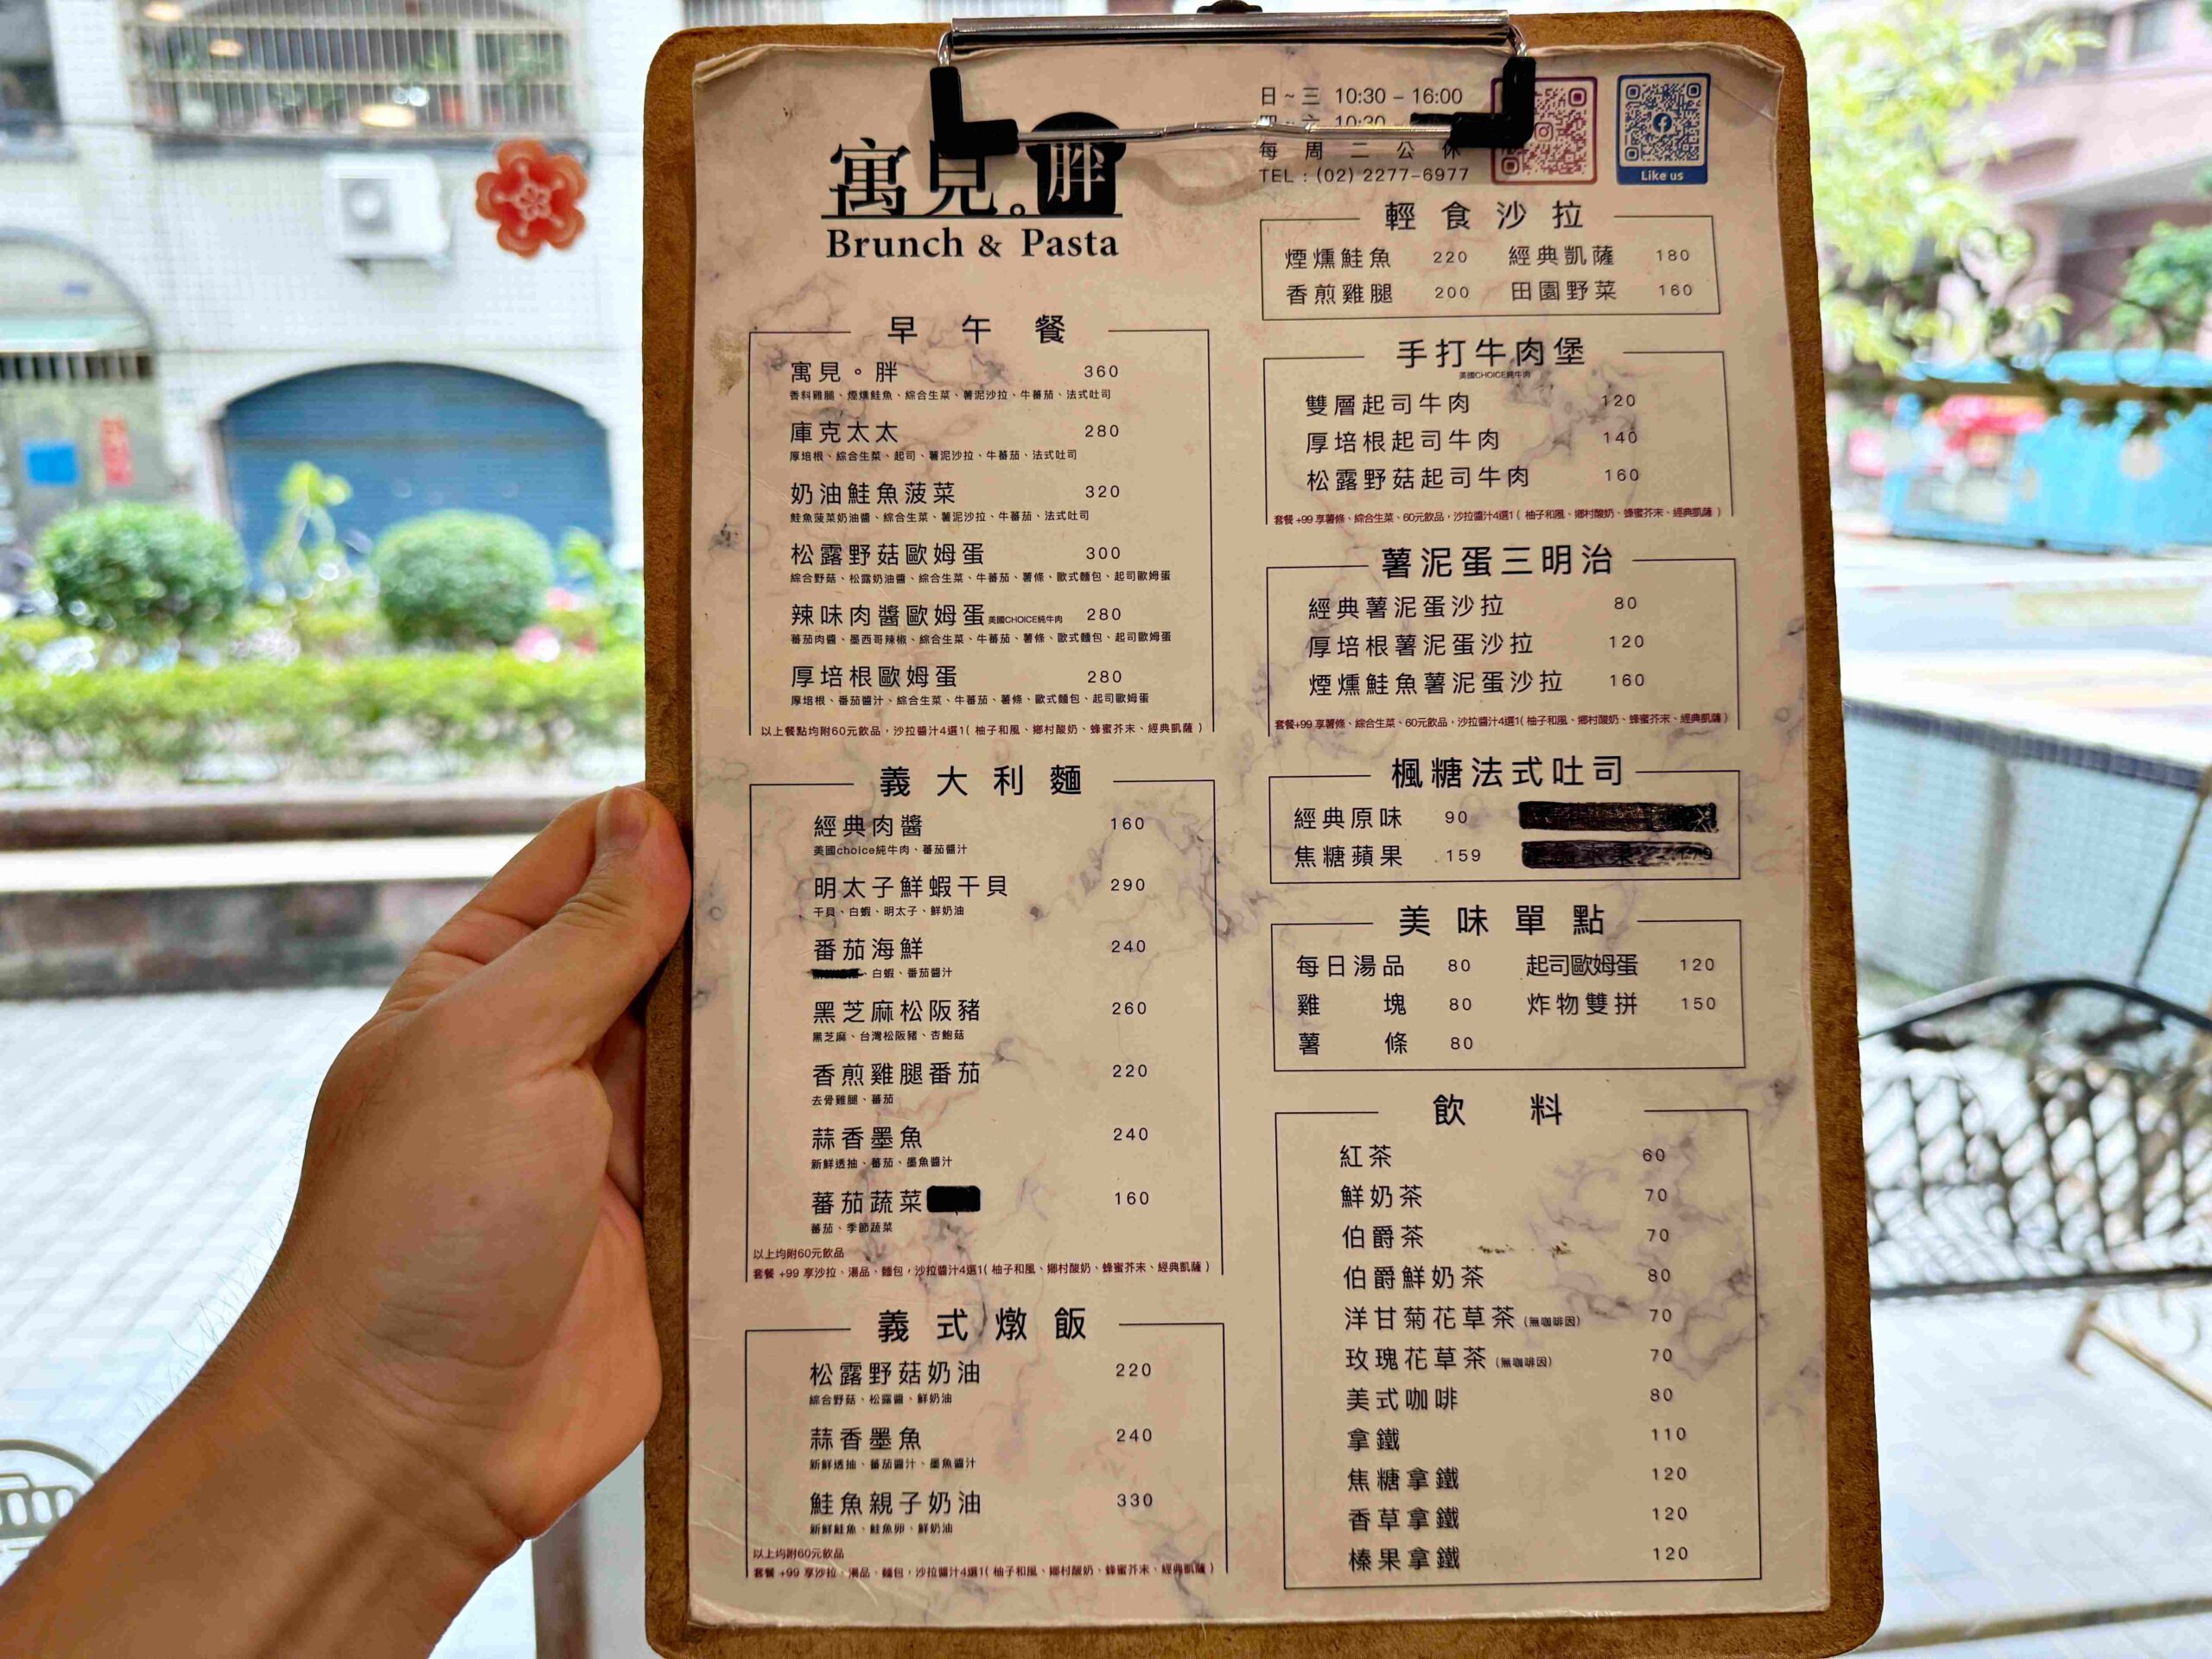 寓見。胖
Brunch & Pasta
日~三 10:30 - 16:00
四~六 10:30 -
每周二公休
TEL : (02) 2277-6977
Like us
早午餐
寓見。胖 360
香料雞腿、煙燻鮭魚、綜合生菜、薯泥沙拉、牛蕃茄、法式吐司
庫克太太 280
厚培根、綜合生菜、起司、薯泥沙拉、牛蕃茄、法式吐司
奶油鮭魚菠菜 320
鮭魚菠菜奶油醬、綜合生菜、薯泥沙拉、牛蕃茄、法式吐司
松露野菇歐姆蛋 300
綜合野菇、松露奶油醬、綜合生菜、牛蕃茄、薯條、歐式麵包、起司歐姆蛋
辣味肉醬歐姆蛋 美國CHOICE純牛肉 280
蕃茄肉醬、墨西哥辣椒、綜合生菜、牛蕃茄、薯條、歐式麵包、起司歐姆蛋
厚培根歐姆蛋 280
厚培根、番茄醬汁、綜合生菜、牛蕃茄、薯條、歐式麵包、起司歐姆蛋
以上餐點均附60元飲品，沙拉醬汁4選1( 柚子和風、鄉村酸奶、蜂蜜芥末、經典凱薩 )
義大利麵
經典肉醬 160
美國choice純牛肉、蕃茄醬汁
明太子鮮蝦干貝 290
干貝、白蝦、明太子、鮮奶油
番茄海鮮 240
、白蝦、番茄醬汁
黑芝麻松阪豬 260
黑芝麻、台灣松阪豬、杏鮑菇
香煎雞腿番茄 220
去骨雞腿、蕃茄
蒜香墨魚 240
新鮮透抽、蕃茄、墨魚醬汁
蕃茄蔬菜 160
蕃茄、季節蔬菜
以上均附60元飲品
套餐 +99 享沙拉、湯品、麵包，沙拉醬汁4選1( 柚子和風、鄉村酸奶、蜂蜜芥末、經典凱薩 )
義式燉飯
松露野菇奶油 220
綜合野菇、松露醬、鮮奶油
蒜香墨魚 240
新鮮透抽、蕃茄醬汁、墨魚醬汁
鮭魚親子奶油 330
新鮮鮭魚、鮭魚卵、鮮奶油
以上均附60元飲品
套餐 +99 享沙拉、湯品、麵包，沙拉醬汁4選1( 柚子和風、鄉村酸奶、蜂蜜芥末、經典凱薩 )
輕食沙拉
煙燻鮭魚 220 經典凱薩 180
香煎雞腿 200 田園野菜 160
手打牛肉堡
美國CHOICE純牛肉
雙層起司牛肉 120
厚培根起司牛肉 140
松露野菇起司牛肉 160
套餐 +99 享薯條、綜合生菜、60元飲品，沙拉醬汁4選1( 柚子和風、鄉村酸奶、蜂蜜芥末、經典凱薩 )
薯泥蛋三明治
經典薯泥蛋沙拉 80
厚培根薯泥蛋沙拉 120
煙燻鮭魚薯泥蛋沙拉 160
套餐+99 享薯條、綜合生菜、60元飲品，沙拉醬汁4選1( 柚子和風、鄉村酸奶、蜂蜜芥末、經典凱薩 )
楓糖法式吐司
經典原味 90
焦糖蘋果 159
美味單點
每日湯品 80 起司歐姆蛋 120
雞塊 80 炸物雙拼 150
薯條 80
飲料
紅茶 60
鮮奶茶 70
伯爵茶 70
伯爵鮮奶茶 80
洋甘菊花草茶 (無咖啡因) 70
玫瑰花草茶 (無咖啡因) 70
美式咖啡 80
拿鐵 110
焦糖拿鐵 120
香草拿鐵 120
榛果拿鐵 120